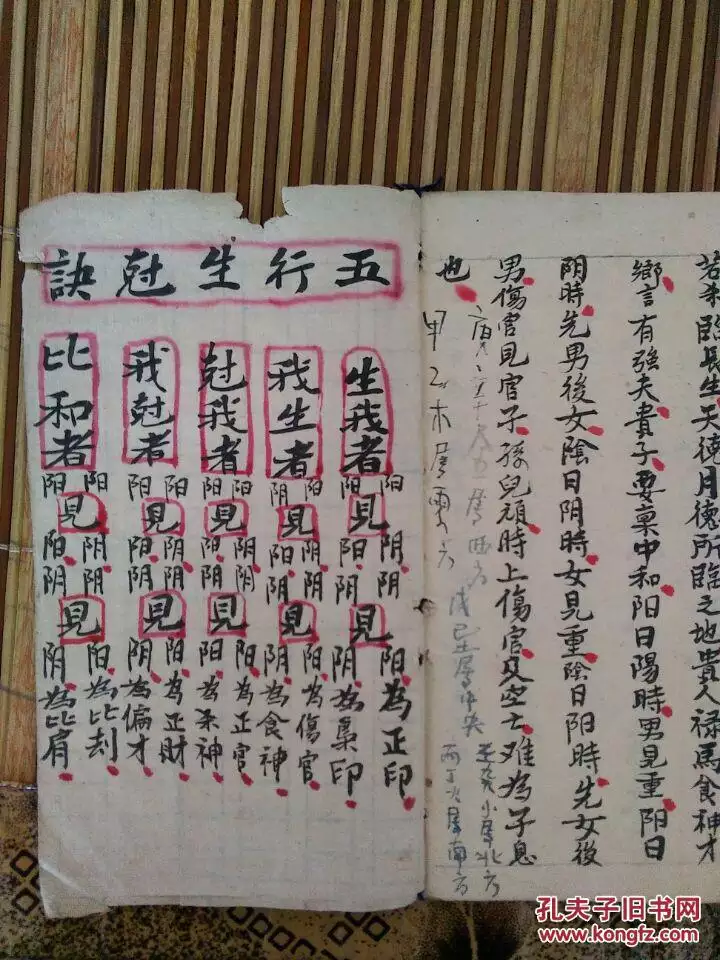 若来臨長生天德月德所臨之地贵人禄馬食神才
鄉言有強夫貴子要稟中和阳日陽時男見重阳日
阴時先男後女陰日阴時女見重陰日阳時先女後
男傷官見官子孫兒頑時上傷官及空亡难為子息
也
甲乙木属東方
属西方
戊己土属中央
壬癸水属北方
丙丁火属南方
五行生尅訣
生我者
見
見
阳阴阴阳為正印
阳阳阴阴為梟印
我生者
見
見
阳阴阴阳為傷官
阴阳阴阴為食神
尅我者
見
見
阳阴阴阳為正官
阳阳阴阳為杀神
我尅者
見
見
阳阴阴阳為正財
阳阳阴阴為偏才
比和者
見
見
阳阴阴阳為比刦
阳阳阴阴為比肩
孔夫子旧书网
www.kongfz.com